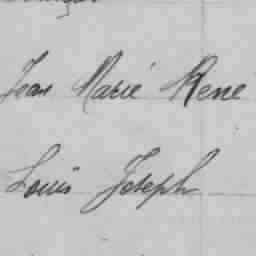 Jean Marie René
Louis Joseph